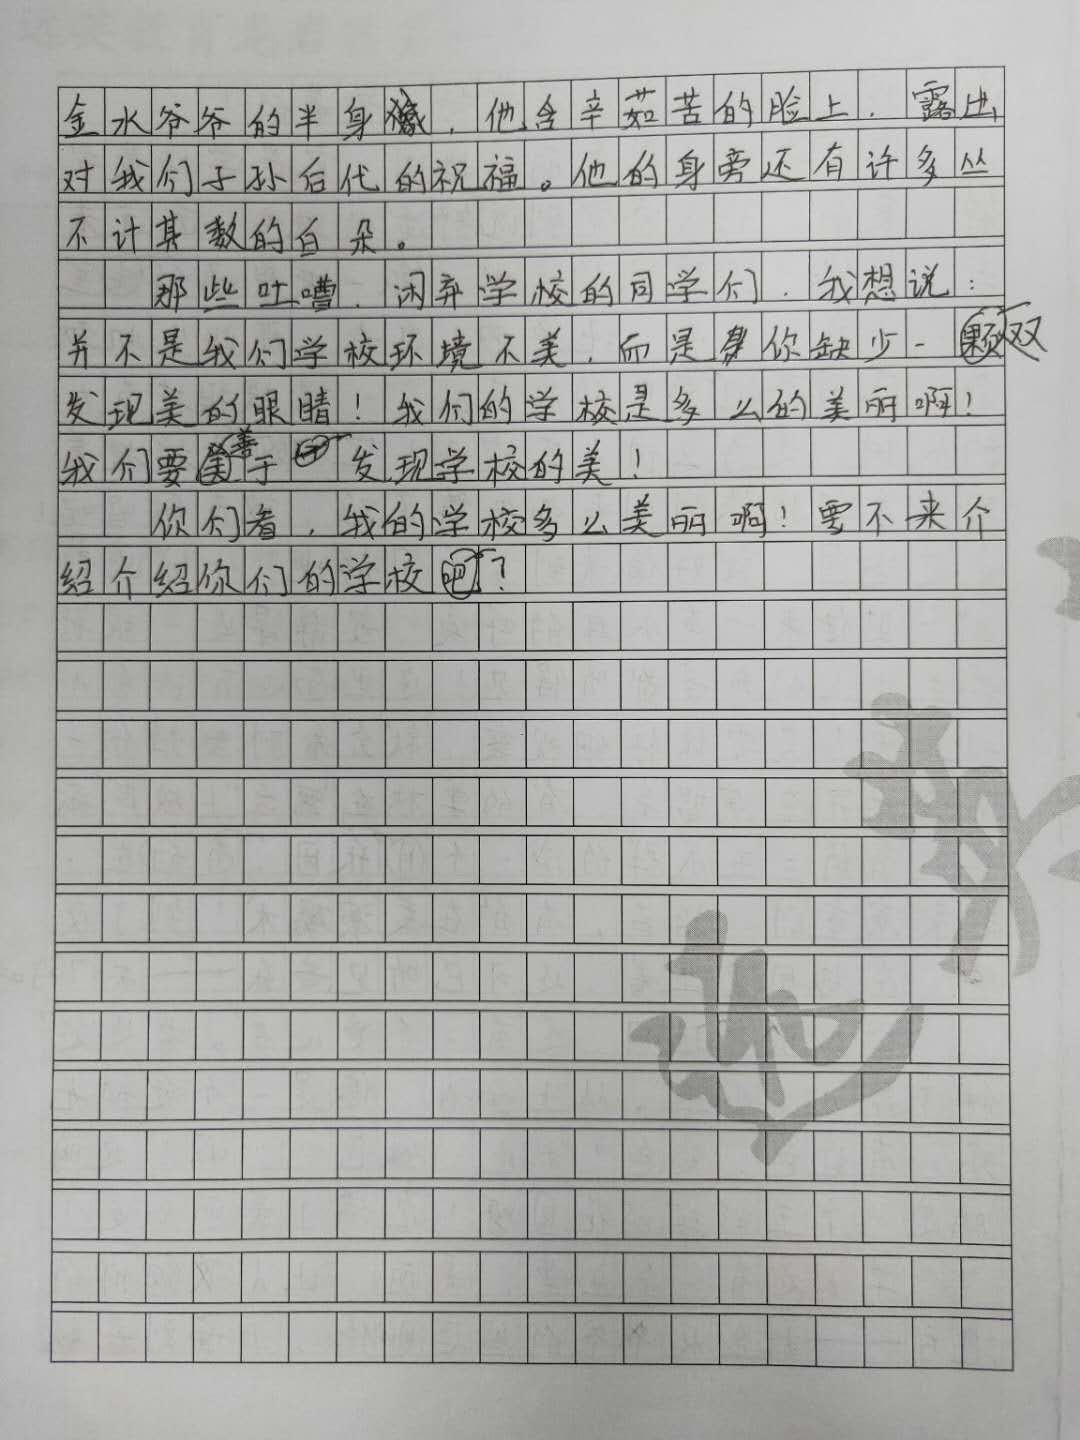 金水爷爷的半身像，他含辛茹苦的脸上，露出
对我们子孙后代的祝福。他的身旁还有许多丛
不计其数的白朵。
那些吐嘈、闲弃学校的同学们，我想说：
并不是我们学校环境不美，而是你缺少一双
发现美的眼睛！我们的学校是多么的美丽啊！
我们要善于发现学校的美！
你们看，我的学校多么美丽啊！要不来介
绍介绍你们的学校？